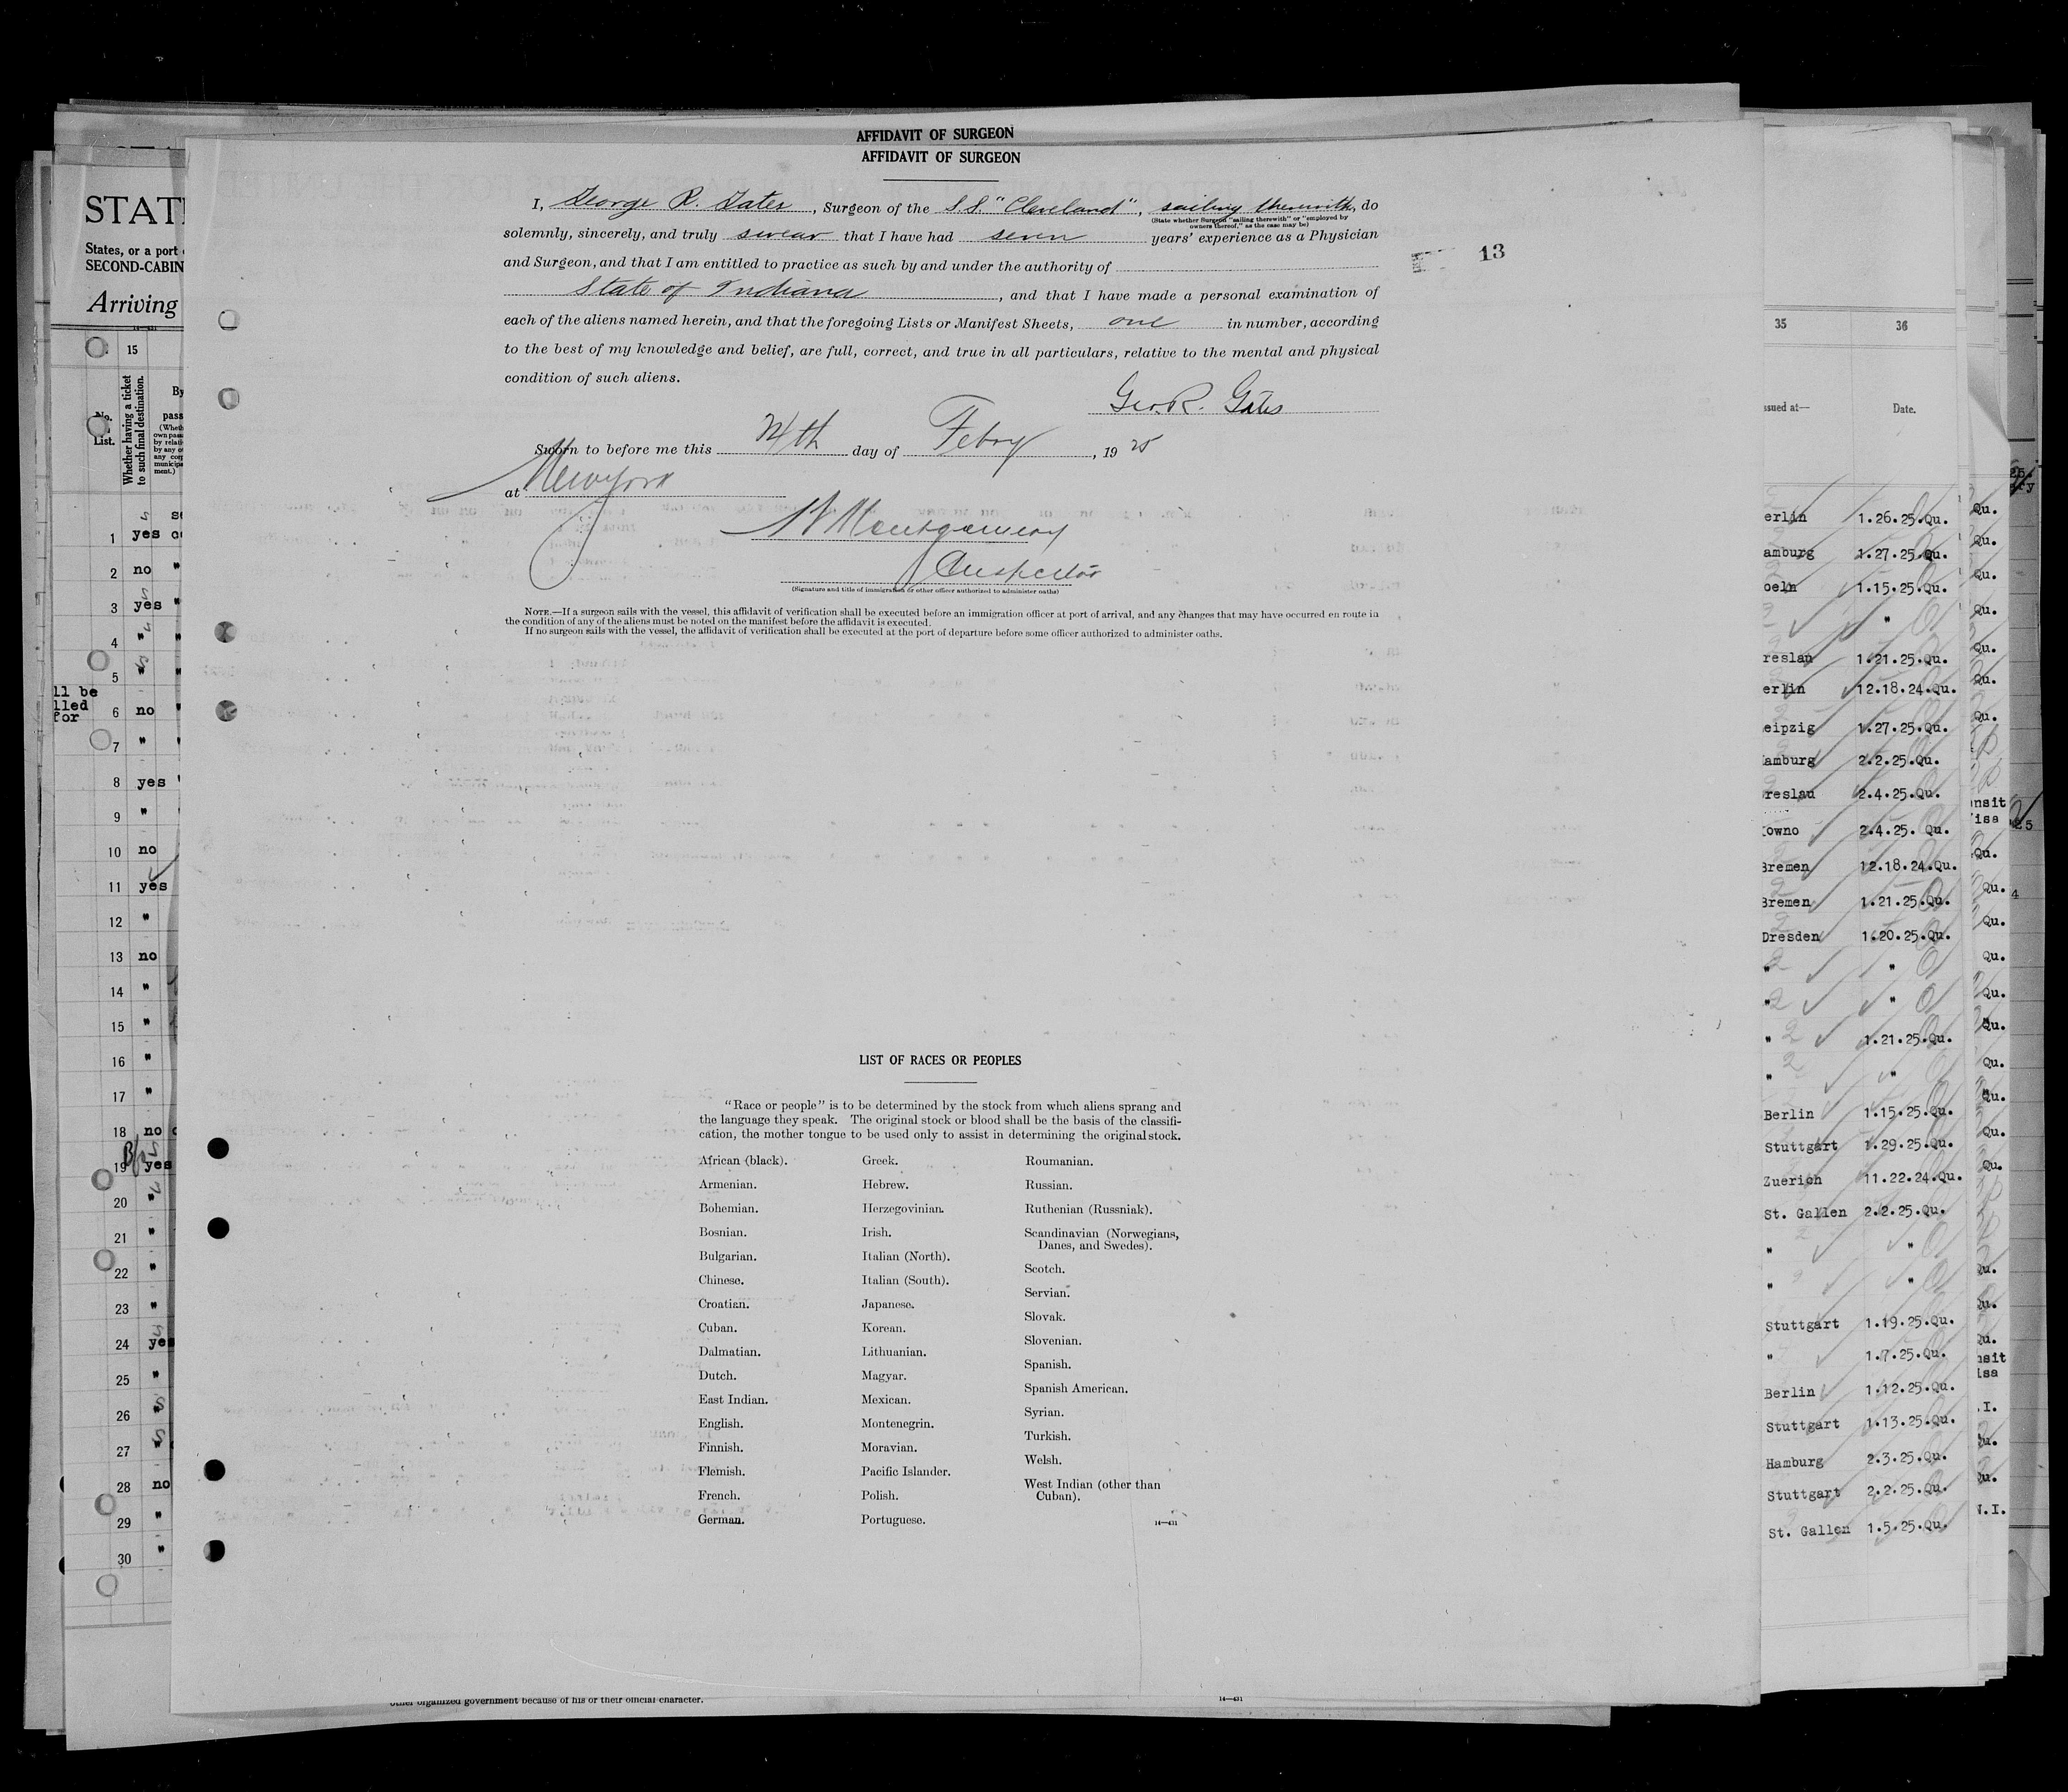 AFFIDAVIT OF SURGEON
AFFIDAVIT OF SURGEON
I, George R. Gates, Surgeon of the S.S. "Cleveland", sailing therewith, do
(State whether Surgeon "sailing therewith" or "employed by
owners thereof," as the case may be)
solemnly, sincerely, and truly swear that I have had seven years' experience as a Physician
and Surgeon, and that I am entitled to practice as such by and under the authority of
State of Indiana, and that I have made a personal examination of
each of the aliens named herein, and that the foregoing Lists or Manifest Sheets, one in number, according
to the best of my knowledge and belief, are full, correct, and true in all particulars, relative to the mental and physical
condition of such aliens.
13
Geo. R. Gates
Sworn to before me this 24th day of Febry, 1925
at New York
Montgomery
Inspector
(Signature and title of immigration or other officer authorized to administer oaths)
NOTE.—If a surgeon sails with the vessel, this affidavit of verification shall be executed before an immigration officer at port of arrival, and any changes that may have occurred en route in
the condition of any of the aliens must be noted on the manifest before the affidavit is executed.
If no surgeon sails with the vessel, the affidavit of verification shall be executed at the port of departure before some officer authorized to administer oaths.
LIST OF RACES OR PEOPLES
"Race or people" is to be determined by the stock from which aliens sprang and
the language they speak. The original stock or blood shall be the basis of the classifi-
cation, the mother tongue to be used only to assist in determining the original stock.
African (black).
Armenian.
Bohemian.
Bosnian.
Bulgarian.
Chinese.
Croatian.
Cuban.
Dalmatian.
Dutch.
East Indian.
English.
Finnish.
Flemish.
French.
German.
Greek.
Hebrew.
Herzegovinian.
Irish.
Italian (North).
Italian (South).
Japanese.
Korean.
Lithuanian.
Magyar.
Mexican.
Montenegrin.
Moravian.
Pacific Islander.
Polish.
Portuguese.
Roumanian.
Russian.
Ruthenian (Russniak).
Scandinavian (Norwegians,
Danes, and Swedes).
Scotch.
Servian.
Slovak.
Slovenian.
Spanish.
Spanish American.
Syrian.
Turkish.
Welsh.
West Indian (other than
Cuban).
14—431
other organized government because of his or their official character.
14—431
STAT
States, or a port
SECOND-CABIN
Arriving
14—431
15
No.
List.
Whether having a ticket
to such final destination.
By
pass
1 yes
2 no "
3 yes "
4 " "
5 " "
ll be
lled
for
6 no "
7 "
8 yes
9 "
10 no
11 yes
12 "
13 no
14 "
15 "
16 "
17 "
18 no
19 yes
20 "
21 "
22 "
23 "
24 yes
25 "
26 "
27 "
28 no
29 "
30 "
35 36
ssued at— Date.
erlin 1.26.25.Qu.
amburg 1.27.25.Qu.
oeln 1.15.25.Qu.
"
reslau 1.21.25.Qu.
erlin 12.18.24.Qu.
eipzig 1.27.25.Qu.
amburg 2.2.25.Qu.
reslau 2.4.25.Qu.
owno 2.4.25. Qu.
Bremen 12.18.24.Qu.
Bremen 1.21.25.Qu.
Dresden 1.20.25.Qu.
" "
" "
" 1.21.25.Qu.
" "
Berlin 1.15.25.Qu.
Stuttgart 1.29.25.Qu.
Zuerich 11.22.24.Qu.
St. Gallen 2.2.25.Qu.
" "
" "
Stuttgart 1.19.25.Qu.
" 1.7.25.Qu.
Berlin 1.12.25.Qu.
Stuttgart 1.13.25.Qu.
Hamburg 2.3.25.Qu.
Stuttgart 2.2.25.Qu.
St. Gallen 1.5.25.Qu.